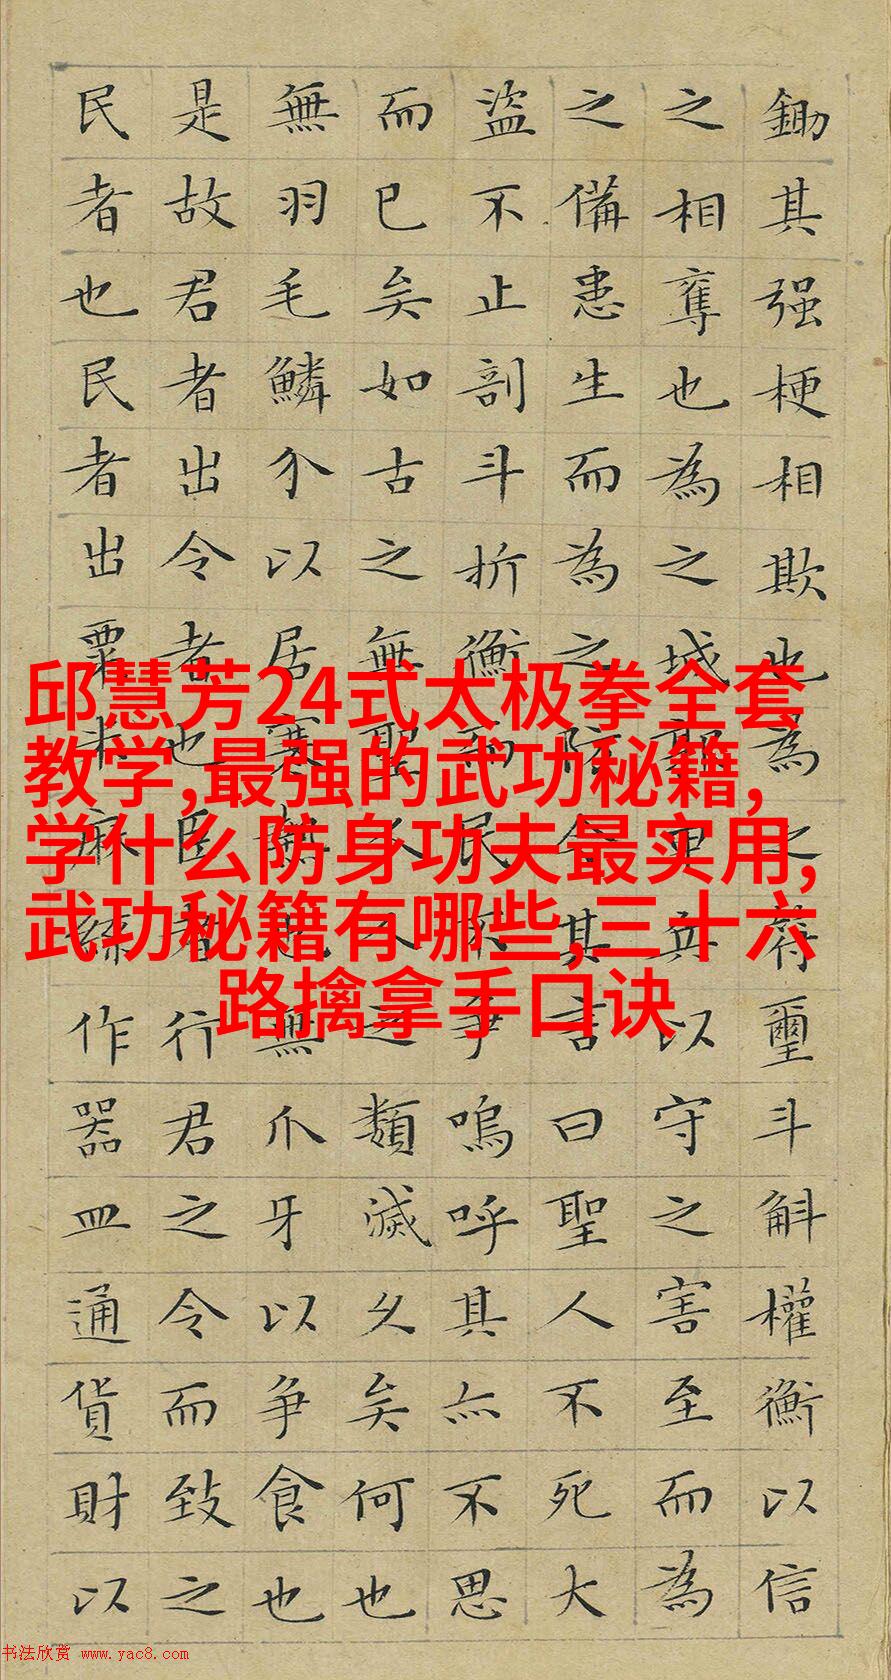 鋤其强梗相欺也為之符璽斗斛權衡以信
之相奪也為之城郭甲兵以守之害至而為
之備患生而為之防今其言曰聖人不死大
盜不止剖斗折衡而民不爭嗚呼其亦不思
而已矣如古之無聖人人之類滅久矣何也
無羽毛鱗介以居寒熱也無爪牙以爭食也
是故君者出令者也臣者行君之令而致之
民者也民者出粟米麻絲作器皿通貨財以
邱慧芳24式太极拳全套
教学,最强的武功秘籍,
学什么防身功夫最实用,
武功秘籍有哪些,三十六
路擒拿手口诀
书法欣赏 www.yac8.com